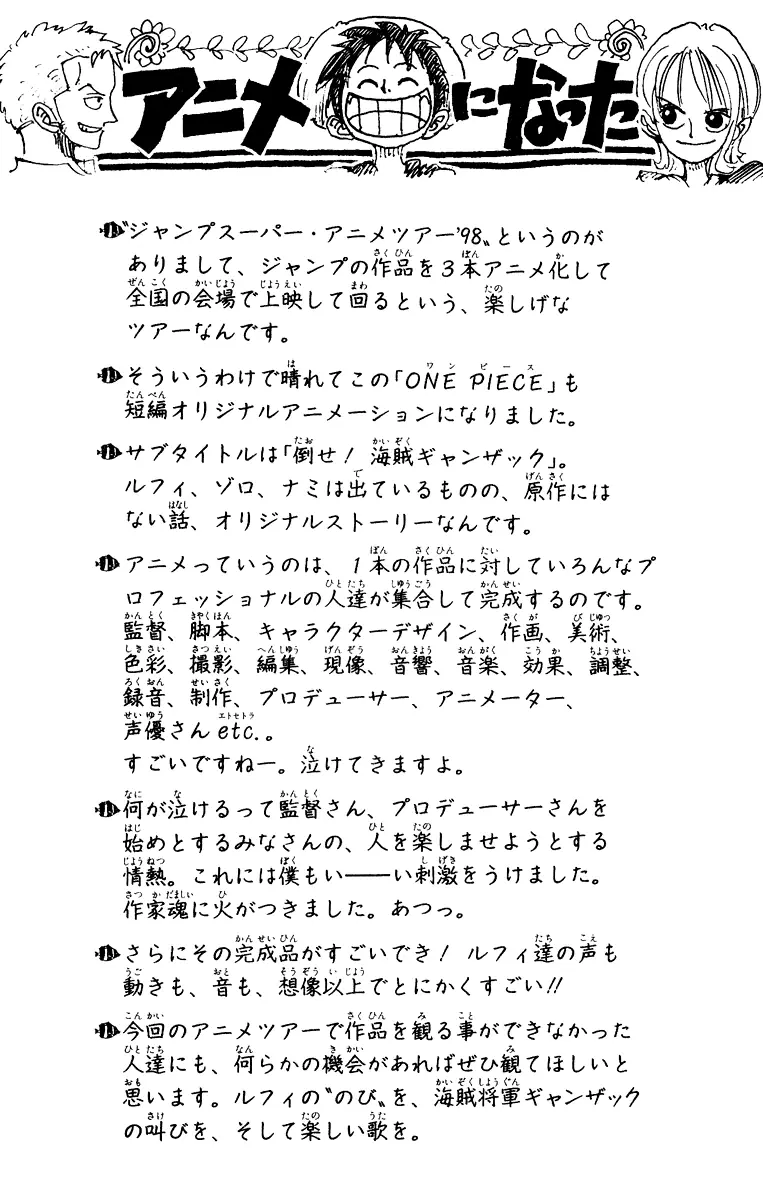 アニメになった
〝ジャンプスーパー・アニメツアー'98〟というのが
ありまして、ジャンプの作品を3本アニメ化して
全国の会場で上映して回るという、楽しげな
ツアーなんです。
そういうわけで晴れてこの「ONE PIECE」も
短編オリジナルアニメーションになりました。
サブタイトルは「倒せ! 海賊ギャンザック」。
ルフィ、ゾロ、ナミは出ているものの、原作には
ない話、オリジナルストーリーなんです。
アニメっていうのは、1本の作品に対していろんなプ
ロフェッショナルの人達が集合して完成するのです。
監督、脚本、キャラクターデザイン、作画、美術、
色彩、撮影、編集、現像、音響、音楽、効果、調整、
録音、制作、プロデューサー、アニメーター、
声優さんetc.。
すごいですねー。泣けてきますよ。
何が泣けるって監督さん、プロデューサーさんを
始めとするみなさんの、人を楽しませようとする
情熱。これには僕もい――い刺激をうけました。
作家魂に火がつきました。あつっ。
さらにその完成品がすごいでき! ルフィ達の声も
動きも、音も、想像以上でとにかくすごい!!
今回のアニメツアーで作品を観る事ができなかった
人達にも、何らかの機会があればぜひ観てほしいと
思います。ルフィの〝のび〟を、海賊将軍ギャンザック
の叫びを、そして楽しい歌を。